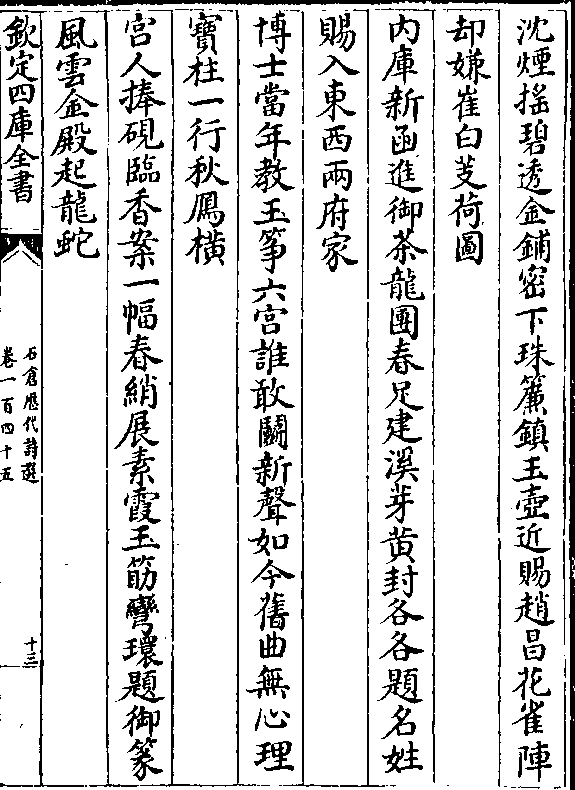 沈煙搖碧透金鋪密下珠簾鎮玉壺近賜趙昌花雀陣
却嫌崔白芰荷圖
内庫新函進御茶龍團春足建溪芽黄封各各題名姓
賜入東西兩府家
博士當年教玉筝六宫誰敢鬭新聲如今舊曲無心理
寶柱一行秋鳳横
宫人捧硯臨香案一幅春綃展素霞玉筯彎環題御篆
風雲金殿起龍蛇
欽定四庫全書
石倉歴代詩選
卷一百四十五
十三